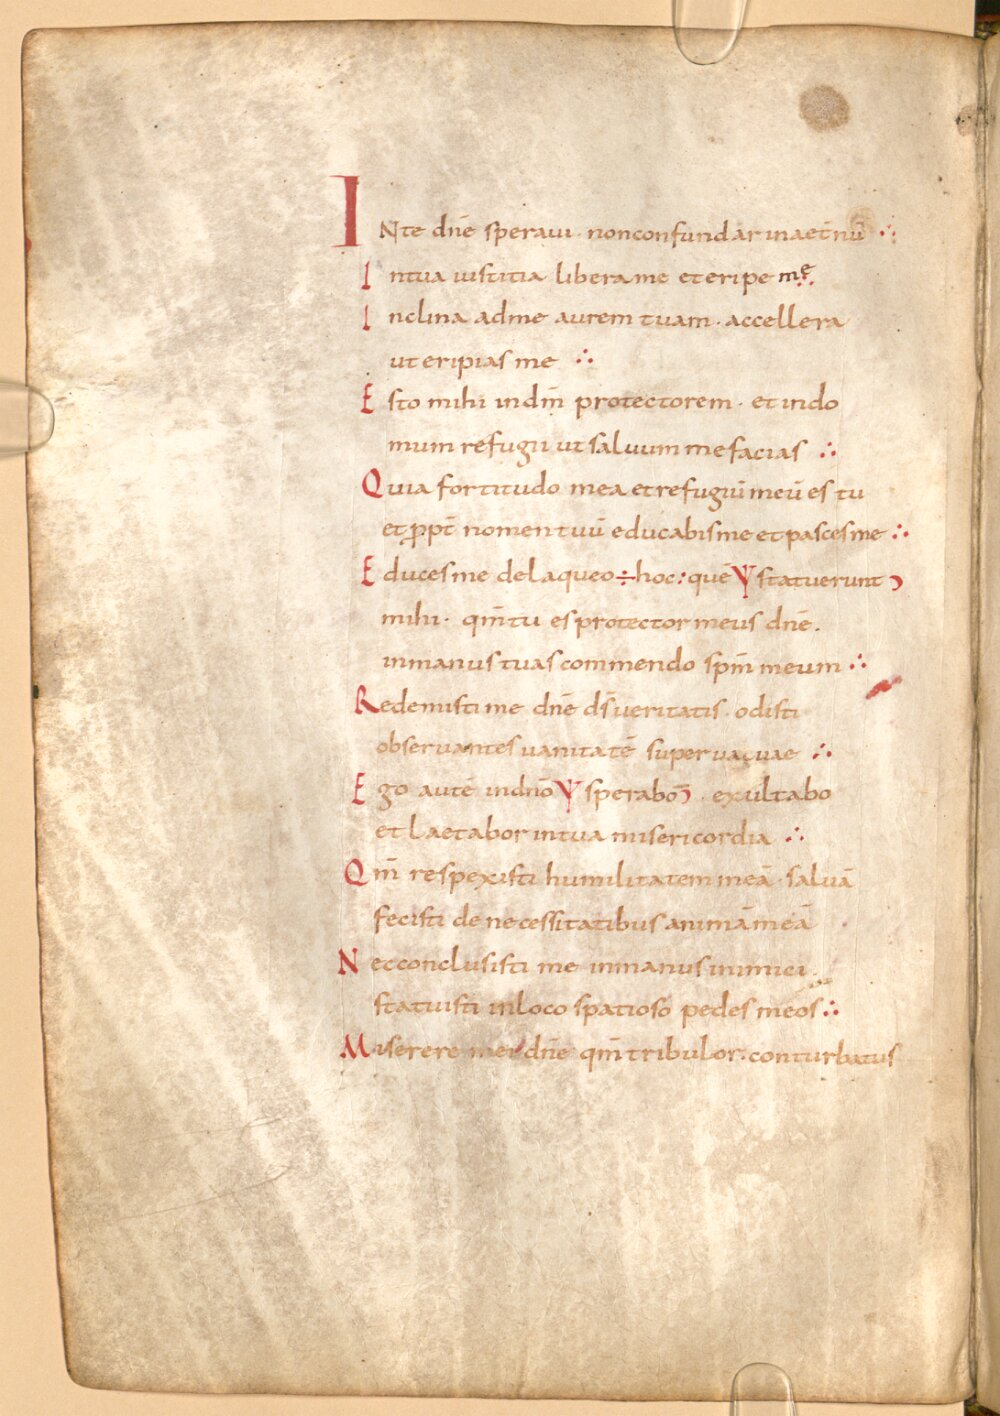 INte dnē speraui · non confundar in aet̄nū ∴
In tua iustitia libera me et eripe me ∴
Inclina ad me aurem tuam · accellera
ut eripias me ∴
Esto mihi in dm̄ protectorem · et in do
mum refugii ut saluum me facias ∴
Quia fortitudo mea et refugiū meū es tu
et ꝓpt̄ nomen tuū educabis me et pasces me ∴
Educes me de laqueo ÷ hoc : quē Ψ statuerunt ͻ
mihi · qm̄ tu es protector meus dnē .
in manus tuas commendo spm̄ meum ∴
Redemisti me dnē ds̄ ueritatis · odisti
obseruantes uanitatē superuacuae ∴
Ego autē in dnō Ψ sperabo ͻ · exultabo
et laetabor in tua misericordia ∴
Qm̄ respexisti humilitatem meā · saluā
fecisti de necessitatibus animā meā
Nec conclusisti me in manus inimici ·
statuisti in loco spatioso pedes meos ∴
Miserere mei dnē qm̄ tribulor · conturbatus